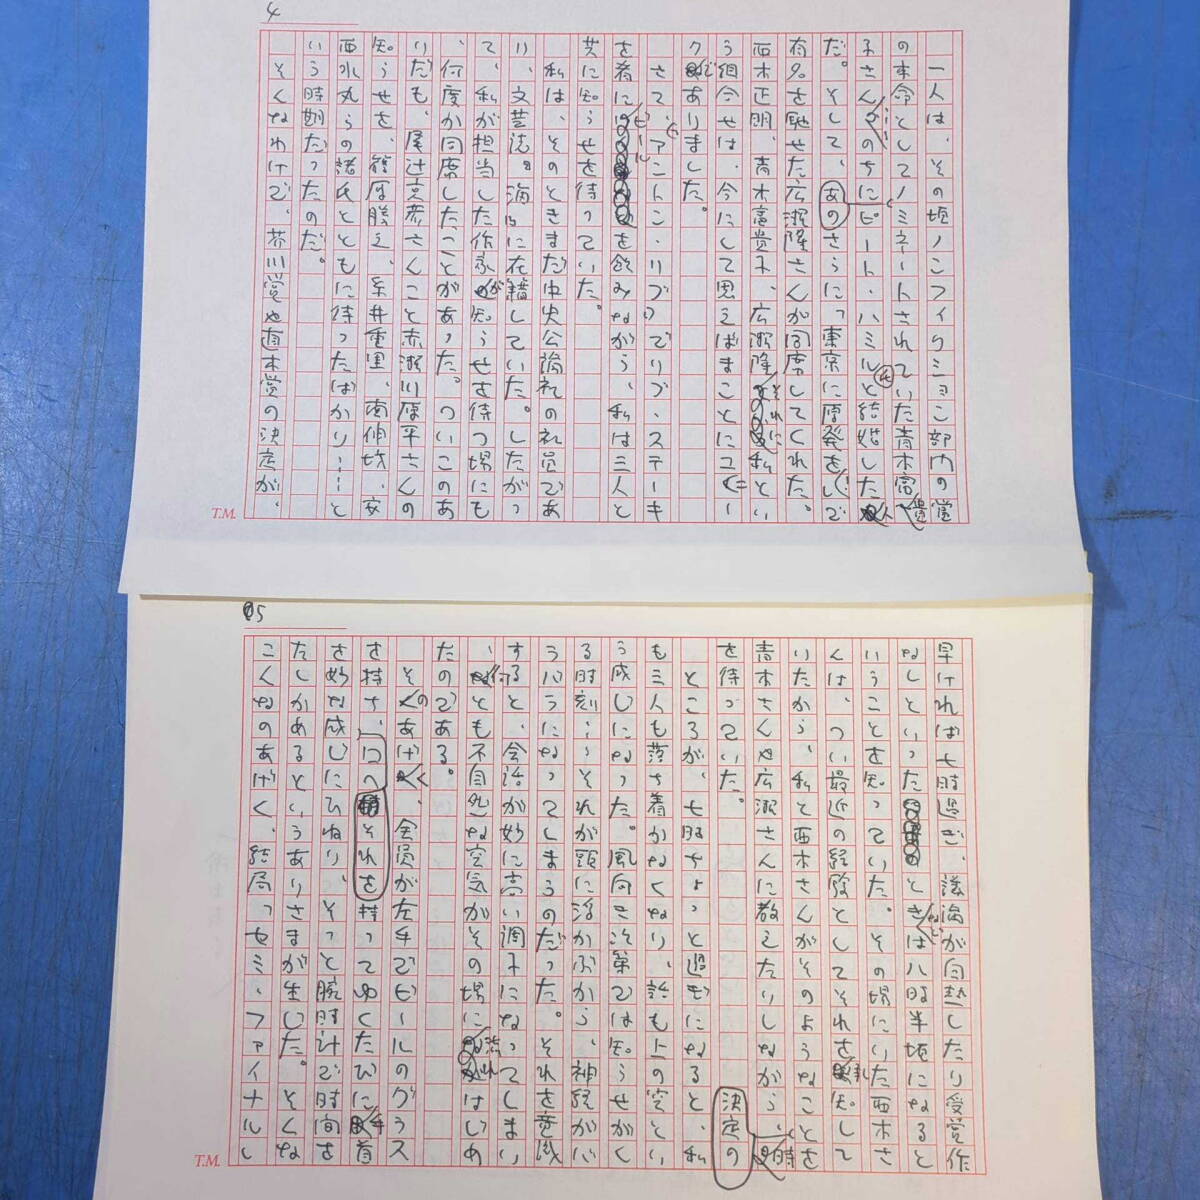 4
一人は、その頃ノンフィクション部門の受賞
の本命としてノミネートされていた青木冨貴
子さん、のちにピート・ハミルと結婚した人
だ。そして、あのさらに「東京に原発を」で
有名を馳せた広瀬隆さんが同席してくれた。
西木正明、青木冨貴子、広瀬隆それに私とい
う組合せは、今にして思えばまことにユニー
クでありました。
さて、アントン・リブでリブ・ステーキ
を肴にビールを飲みながら、私は三人と
共に知らせを待っていた。
私は、そのときまだ中央公論社の社員であ
り、文芸誌『海』に在籍していた。したがっ
て、私が担当した作家が知らせを待つ場にも
、何度か同席したことがあった。ついこのあ
いだも、尾辻克彦さんこと赤瀬川原平さんの
知らせを、篠原勝之、糸井重里、南伸坊、安
西水丸らの諸氏とともに待ったばかり……と
いう時期だったのだ。
そんなわけで、芥川賞や直木賞の決定が、
T.M.
05
早ければ七時過ぎ、議論が白熱したり受賞作
なしといったときなどは八時半頃になると
いうことを知っていた。その場にいた西木さ
んは、つい最近の経験としてそれを承知して
いたから、私と西木さんがそのようなことを
青木さんや広瀬さんに教えたりしながら、決定の時
を待っていた。
ところが、七時ちょっと過ぎになると、私
も三人も落着かなくなり、話も上の空とい
う感じになった。風向き次第では知らせがく
る時刻……それが頭に浮かぶから、神経がバ
ラバラになってしまうのだった。それを意識
すると、会話が妙に高い調子になってしまい
、何とも不自然な空気がその場に流れはじめ
たのである。
そのあげく、全員が左手でビールのグラス
を持ち、口へそれを持ってゆくたびに手首
を妙な感じにひねり、そっと腕時計で時間を
たしかめるというありさまが生じた。そんな
こんなのあげく、結局「セミ・ファイナル」
T.M.